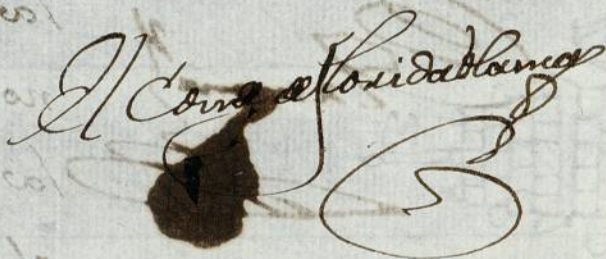 El Conde de Floridablanca